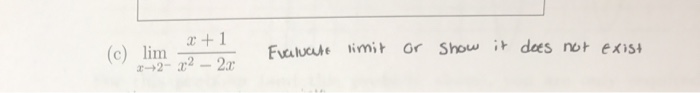 (c) lim x→2⁻ (x + 1)/(x² − 2x) Evaluate limit or show it does not exist